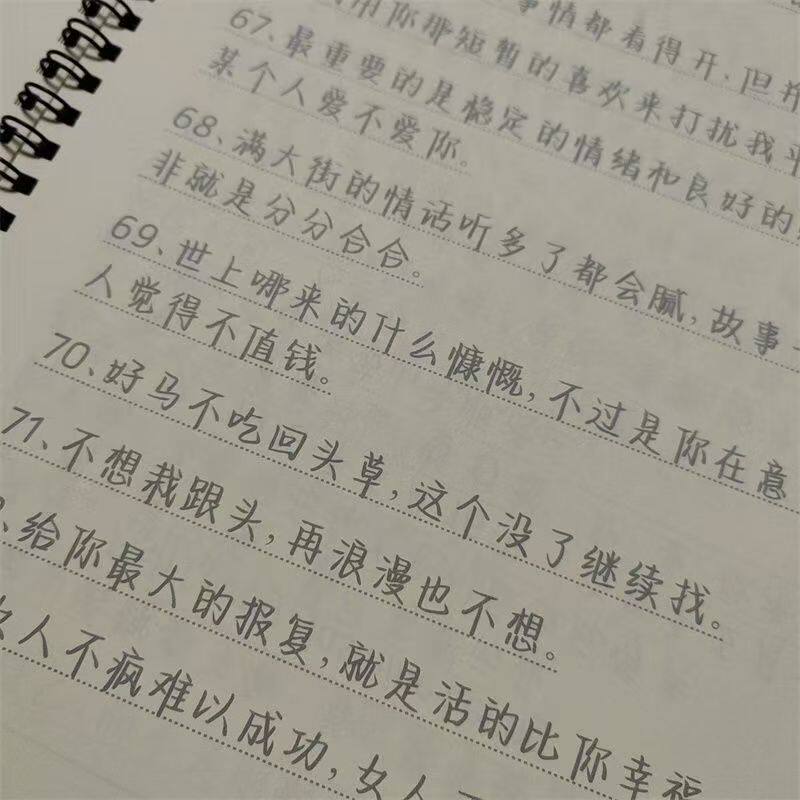 事情都看得开,但
用你那短暂的喜欢来打扰我
67、最重要的是稳定的情绪和良好的
某个人爱不爱你。
68、满大街的情话听多了都会腻,故事
非就是分分合合。
69、世上哪来的什么慷慨,不过是你在意
人觉得不值钱。
70、好马不吃回头草,这个没了继续找。
71、不想栽跟头,再浪漫也不想。
、给你最大的报复,就是活的比你幸福
人不疯难以成功,女人